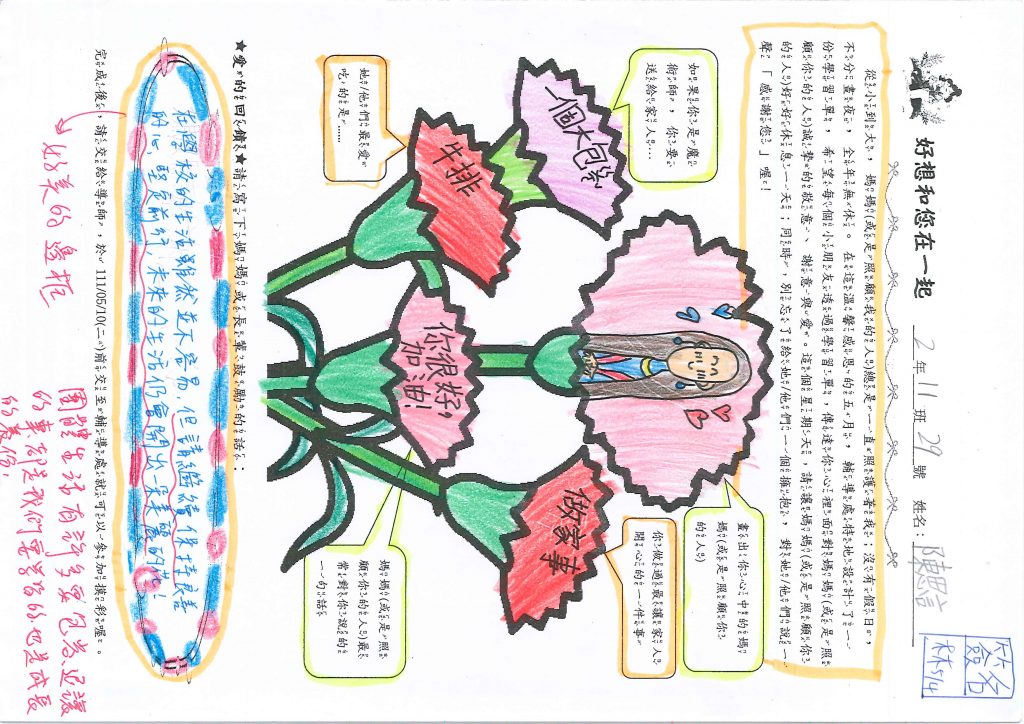 好想和您在一起
2年11班29號 姓名：陳熙言
從小到大，媽媽(或是照顧我的人)總是一直照護著我；沒有假日、
不分晝夜，全年無休。在這溫馨感恩的五月，輔導處特地設計了一
份學習單，希望每個小朋友透過學習單，傳達你心裡面對媽媽(或是照
顧你的人)誠摯的敬意、謝意與愛。這個星期天，請讓媽媽(或是照顧你
的人)好好休息一天；同時，別忘了給她/他們一個擁抱，對她/他們說一
聲「感謝您。」喔！
如果你是魔
術師，你要
送給家人…
一個大包餐
畫出你心中的媽
媽(或是照顧你
的人)
她/他們最愛
吃的是……
牛排
你做過最讓家人
開心的一件事
做家事
你很好，
加油！
媽媽(或是照
顧你的人)最
常對你說的
一句話
★愛的回饋★請寫下媽媽或長輩鼓勵的話：
在學校的生活雖然並不容易，但請繼續保持良善
的心，堅定前行，未來的生活仍會開出一朵朵美麗的花！
完成後，請交給導師，於111/05/10(二)前交至輔導處就可以參加摸彩喔。
好美的邊框
團體生活有許多要包容、退讓
的事，都是我們要學習的，也是成長
的養份！
簽名
林 5/4